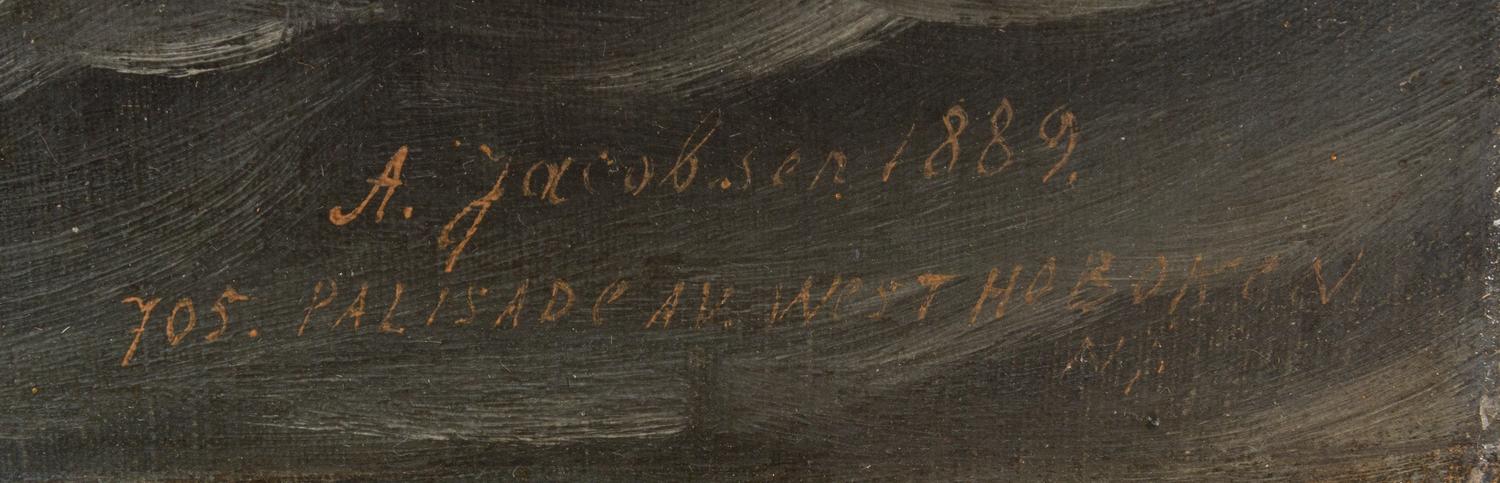 A. Jacobsen 1889.
705. PALISADE AV. WEST HOBOKEN
N.J.